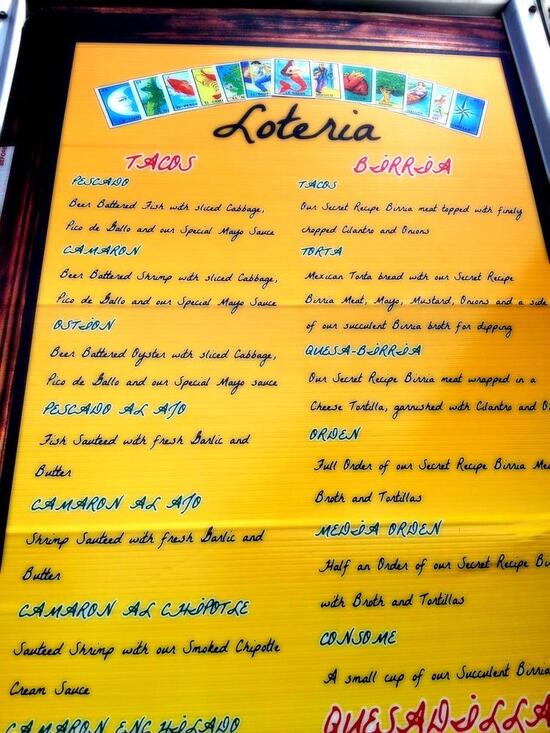 Loteria
TACOS
PESCADO
Beer Battered Fish with sliced Cabbage,
Pico de Gallo and our Special Mayo Sauce
CAMARON
Beer Battered Shrimp with sliced Cabbage,
Pico de Gallo and our Special Mayo Sauce
OSTION
Beer Battered Oyster with sliced Cabbage,
Pico de Gallo and our Special Mayo sauce
PESCADO AL AJO
Fish Sauteed with fresh Garlic and
Butter
CAMARON AL AJO
Shrimp Sauteed with fresh Garlic and
Butter
CAMARON AL CHIPOTLE
Sauteed Shrimp with our Smoked Chipotle
Cream Sauce
CAMARON ENCHILADO
BIRRIA
TACOS
Our Secret Recipe Birria meat topped with finely
chopped Cilantro and Onions
TORTA
Mexican Torta bread with our Secret Recipe
Birria Meat, Mayo, Mustard, Onions and a side
of our succulent Birria broth for dipping
QUESA-BIRRIA
Our Secret Recipe Birria meat wrapped in a
Cheese Tortilla, garnished with Cilantro and
ORDEN
Full Order of our Secret Recipe Birria
Broth and Tortillas
MEDIA ORDEN
Half an Order of our Secret Recipe
with Broth and Tortillas
CONSOME
A small cup of our Succulent Birria
QUESADILLA